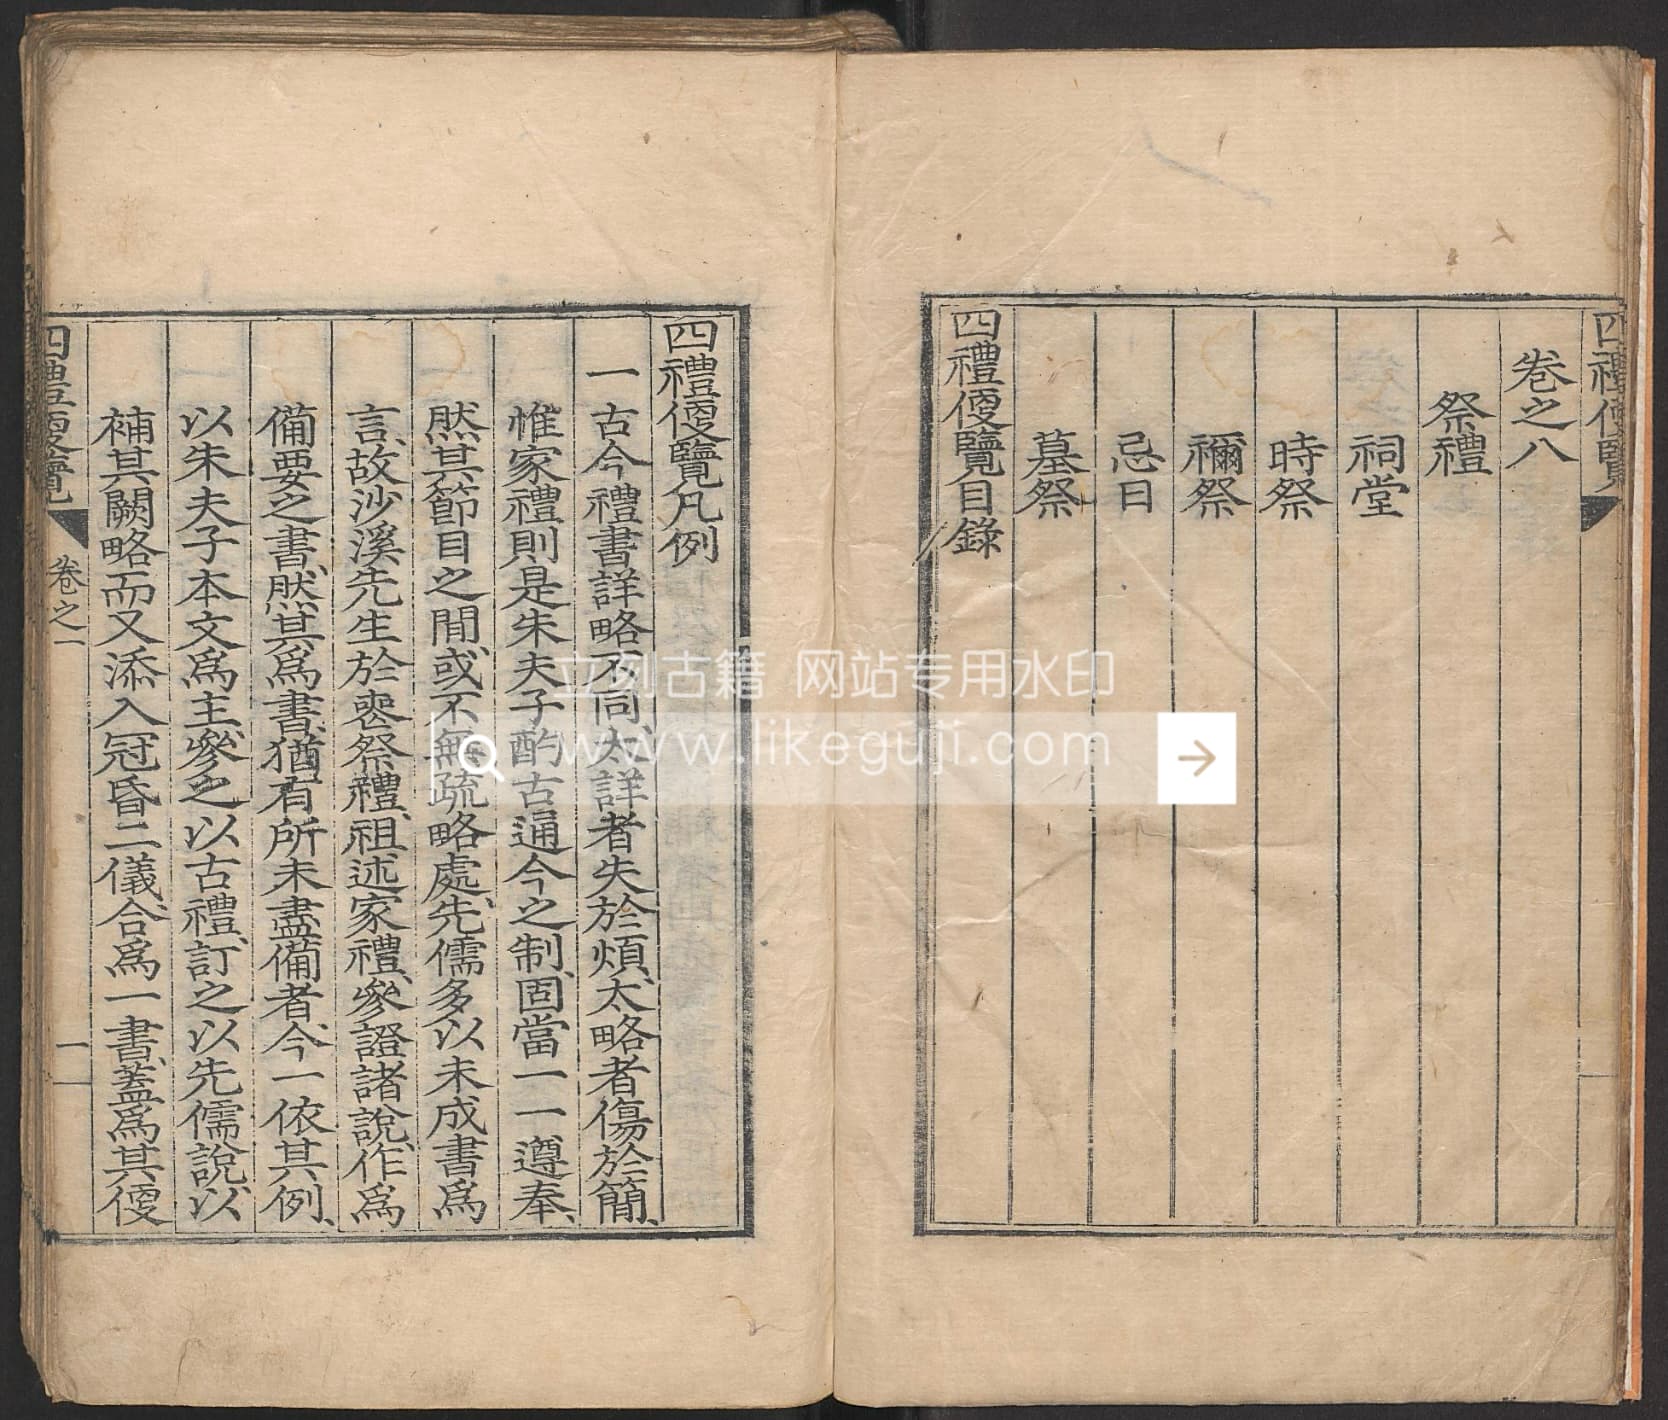 四禮便覽
卷之八
祭禮
祠堂
時祭
禰祭
忌日
墓祭
四禮便覽目錄
四禮便覽凡例
一古今禮書詳略不同、太詳者失於煩、太略者傷於簡、
惟家禮則是朱夫子酌古通今之制、固當一一遵奉、
然其節目之間、或不無疏略處、先儒多以未成書爲
言、故沙溪先生於喪祭禮、祖述家禮、參證諸說、作爲
備要之書、然其爲書、猶有所未盡備者、今一依其例、
以朱夫子本文爲主、參之以古禮、訂之以先儒說、以
補其闕略、而又添入冠昏二儀、合爲一書、蓋爲其便
四禮便覽 卷之一 一
立刻古籍 网站专用水印
www.likeguji.com